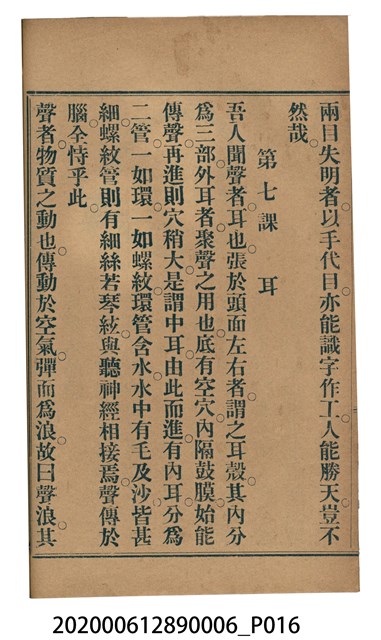 兩目失明者。以手代目。亦能識字作工。人能勝天。豈不
然哉。
第七課　耳
吾人聞聲者。耳也。張於頭面左右者。謂之耳殼。其內分
爲三部。外耳者。聚聲之用也。底有空穴。內隔鼓膜。始能
傳聲。再進則穴稍大。是謂中耳。由此而進。有內耳。分爲
二管。一如環。一如螺紋。環管含水。水中有毛及沙。皆甚
細。螺紋管則有細絲若琴絃。與聽神經相接焉。聲傳於
腦。全恃乎此。
聲者。物質之動也。傳動於空氣。彈而爲浪。故曰聲浪。其
202000612890006_P016